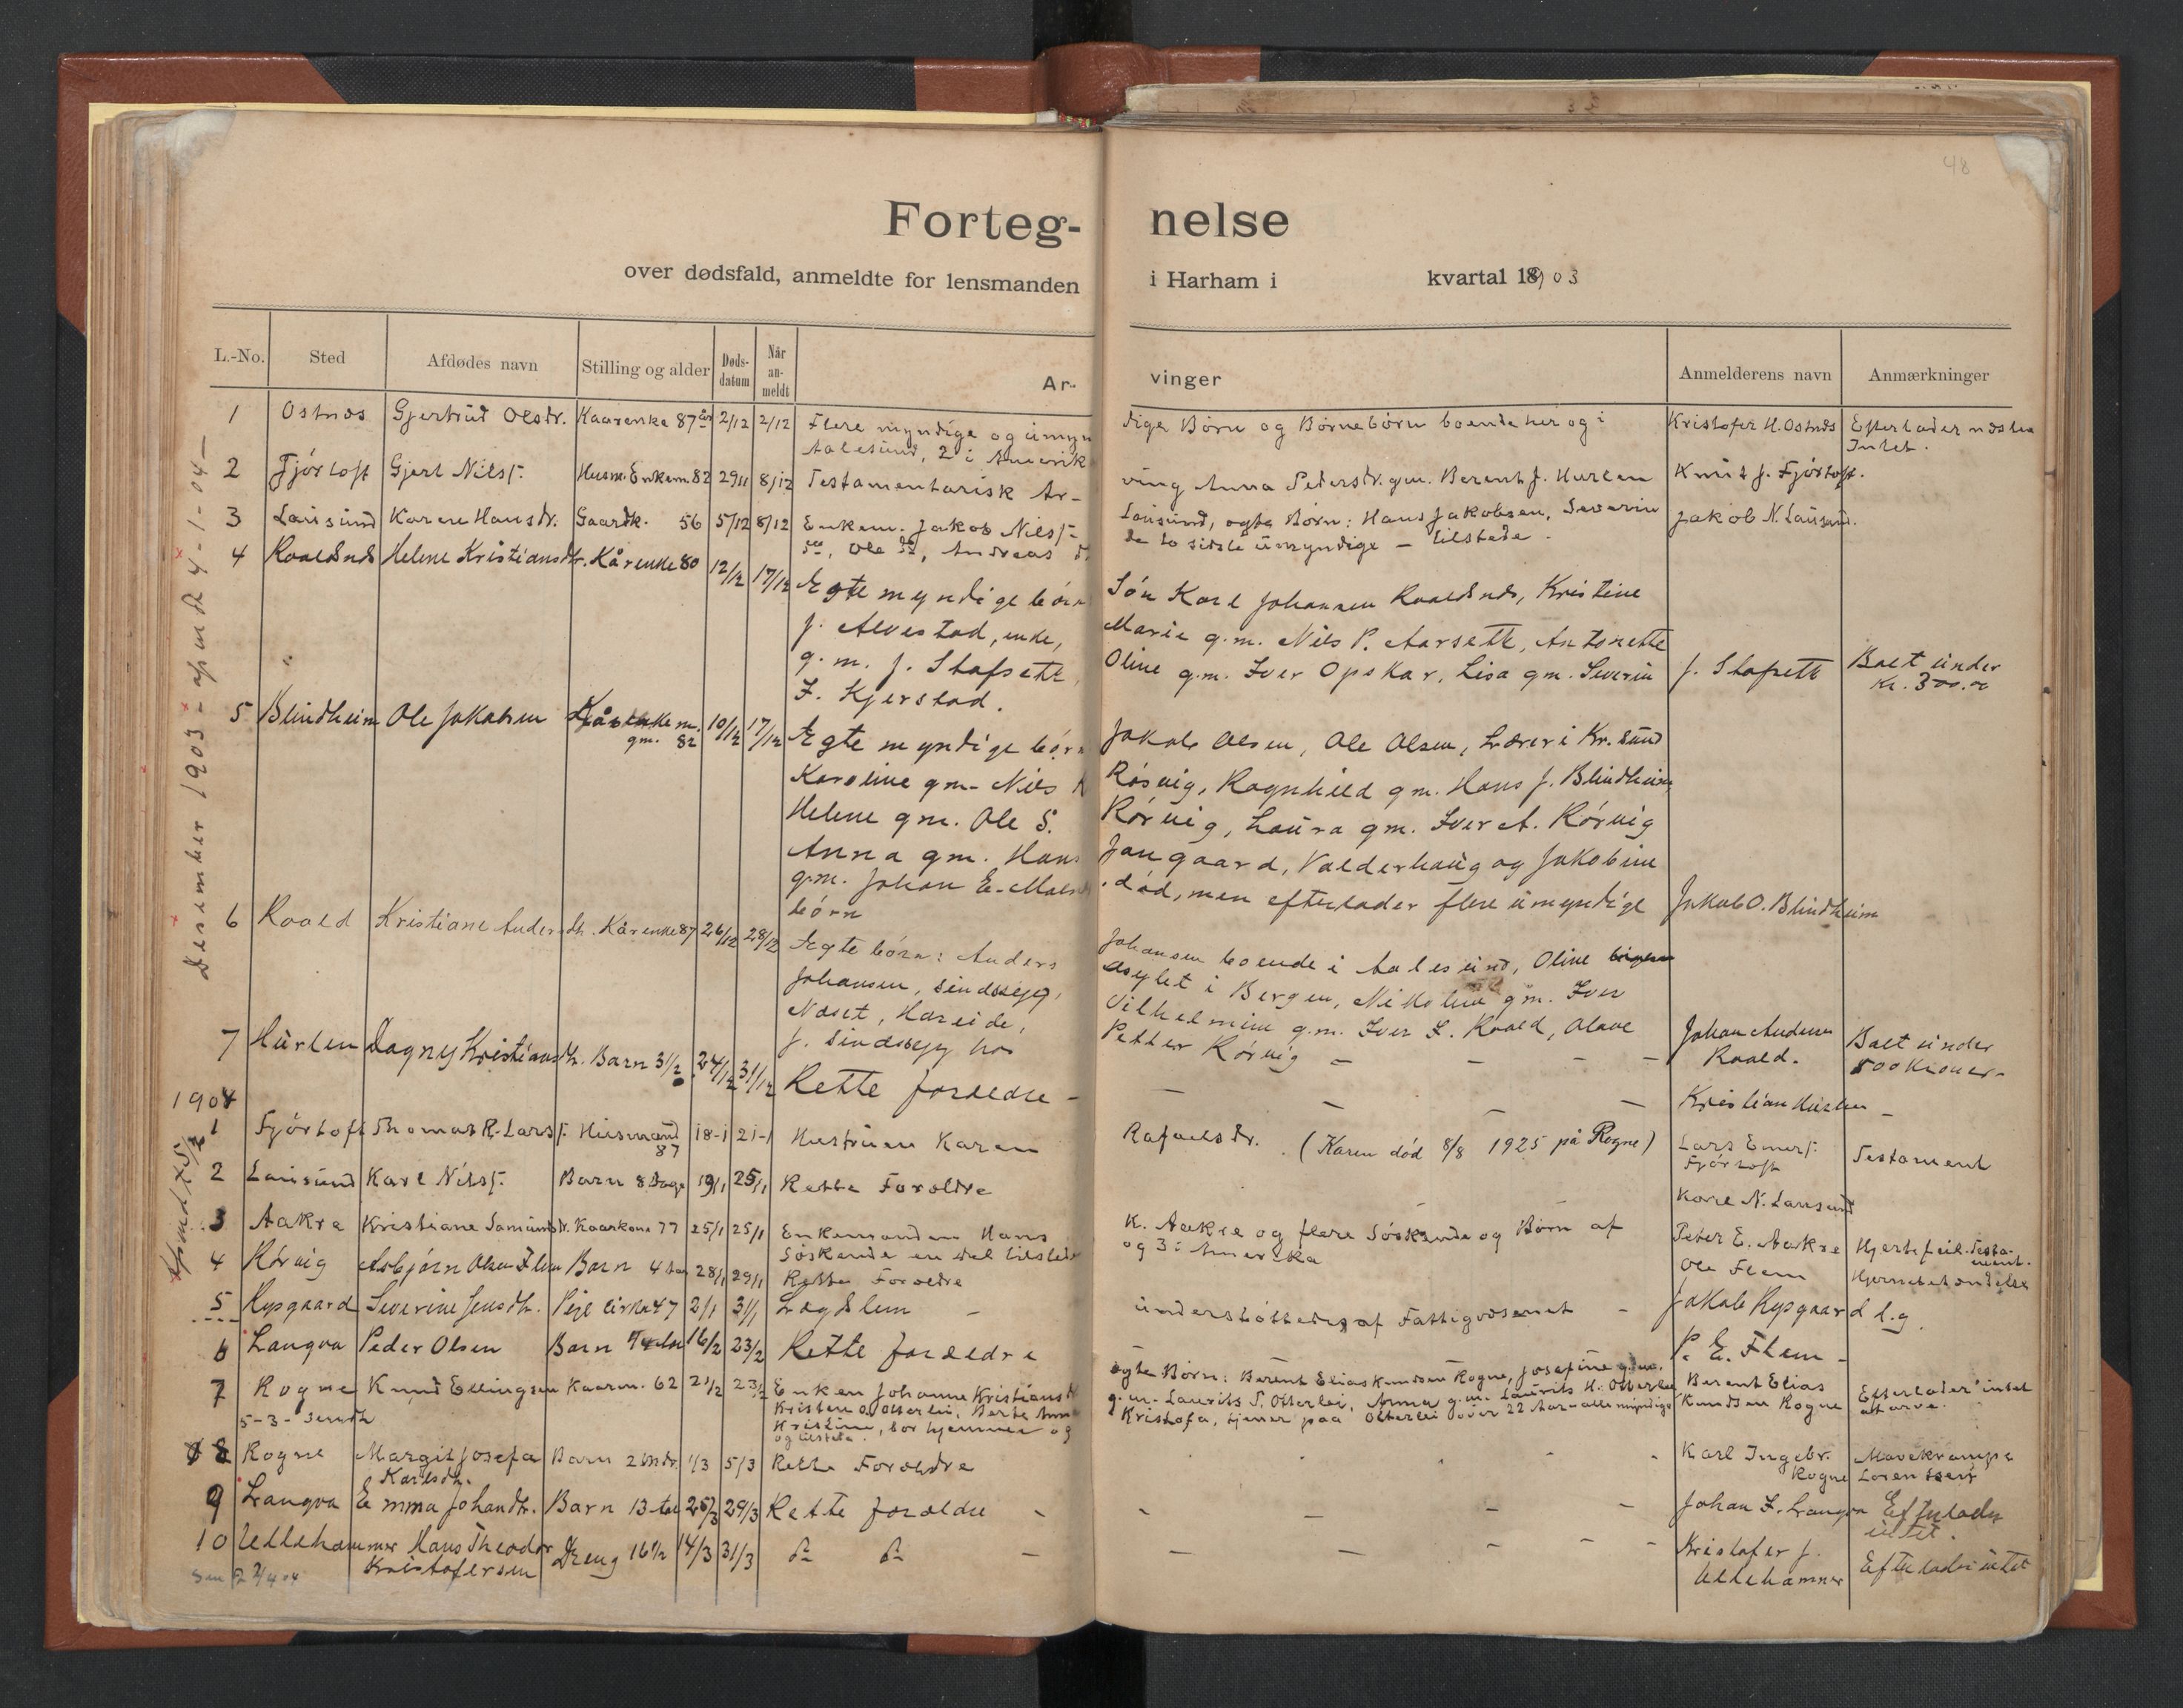 48
Forteg- nelse
over dødsfald, anmeldte for lensmanden i Harham i kvartal 1903
L.-No. Sted Afdødes navn Stilling og alder Døds-datum Når an-meldt Ar- vinger Anmelderens navn Anmærkninger
Desember 1903 - 4-1-04 -
1 Ostnæs Gjertrud Olsdr. Kaarenke 87 år 2/12 2/12 Flere myndige og umyn dige Børn og Børnebørn boende her og i Kristofer H. Ostnæs Efterlader næsten
Aalesund, 2 i Amerik Intet.
2 Fjørtoft Gjert Nilss. Husm. Enkem. 82 29/11 8/12 Testamentarisk Ar- ving Anna Pedersdr. gm. Berent J. Hurlen Knut J. Fjørtoft.
3 Lausund Karen Hansdr. Gaardk. 56 5/12 8/12 Enkem. Jakob Nilss. Lausund, ægte Børn: Hans Jakobsen, Severin Jakob N. Lausund.
do, Ole do, Andreas do de to sidste umyndige - tilstede.
4 Roaldsnes Helene Kristiansdtr. Kårenke 80 12/12 17/12 Ægte myndige børn Søn Karl Johansen Roaldsnes, Kristine
J. Alvestad, enke, Marie g.m. Nils P. Aarseth, Antonette
g.m. J. Stafseth, Oline g.m. Iver Opskar, Lisa gm. Severin J. Stafseth Boet under
Z. Kjerstad. kr. 300.00
5 Blindheim Ole Jakobsen Kårenkem. 10/12 17/12 Ægte myndige børn Jakob Olsen, Ole Olsen, Lærer i Kr.sund
gm. 82
Karoline gm. Nils Røsvig, Ragnhild gm. Hans J. Blindheim
Helene gm. Ole S. Rørvig, Laura gm. Iver A. Rørvig
Anna gm. Hans Jangaard, Valderhaug og Jakobine
g.m. Johan E. død, men efterlader flere umyndige Jakob O. Blindheim
børn
6 Roald Kristiane Andersdtr. Kårenke 87 26/12 28/12 Ægte børn: Anders Johansen boende i Aalesund, Oline
Johansen, sindssyg, asylet i Bergen, Nikoline gm. Iver
Næset, Hareide, Vilhelmine g.m. Iver L. Roald, Olave Johan Andersen Boet under
J. sindssyg hos Petter Rørvig - - - - Roald. 500 kroner -
7 Hurlen Dagny Kristiansdtr. Barn 3 1/2 24/12 31/12 Rette forældre - - - - - Kristian Hurlen -
1904
1 Fjørtoft Thomas R. Larss. Husmand 18-1 21-1 Hustruen Karen Rafaelsdr. (Karen død 8/8 1925 på Rogne) Lars Emers. Testament
87 Fjørtoft
2 Lausund Karl Nilss. Barn 8 Dage 19/1 25/1 Rette Forældre Karl N. Lausund
3 Aakre Kristiane Samuelsdr. Kaarkone 77 25/1 25/1 Enkemanden Hans K. Aakre og flere Søskende og Børn af Peter E. Aakre Hjertefeil. Testa-
Søskende en del tilstede og 3 i Amerika ment.
4 Rørvig Asbjørn Olsen Flem Barn 4 28/1 29/1 Rette Forældre Ole Flem
5 Rypgaard Severine Jensdtr. Pige cirka 47 2/1 31/1 Lægdslem - understøttedes af Fattigvæsenet - Jakob Rypgaard d.g.
6 Langva Peder Olsen Barn 16/2 23/2 Rette forældre P. E. Flem -
7 Rogne Knud Ellingsen Kaarm. 62 21/2 23/2 Enken Johanne Kristiansdtr. ægte Børn: Berent Elias Knudsen Rogne, Josefine g.m. Berent Elias Efterlader intet
Kristen O. Otterlei, Berte Anna g.m. Laurits P. Otterlei, Anna g.m. Laurits H. Otterlei Knudsen Rogne at arve.
5-3- Kristine, bor hjemme og Kristofa, tjener paa Otterlei over 22 Aar - alle myndige
og tilstede.
8 Rogne Margit Josefa Barn 2 Mdr. 1/3 5/3 Rette Forældre - - - Karl Ingebr. Mavekrampe
Karlsdtr. Rogne
9 Langva Emma Johansdtr. Barn 13 25/3 29/3 Rette forældre - - - - - Johan Z. Langva Efterlader
intet.
10 Ullehammer Hans Theodor Dreng 16 1/2 14/3 31/3 do do - - - - - - Kristofer J. Efterlader intet
Kristofersen Ullehammer